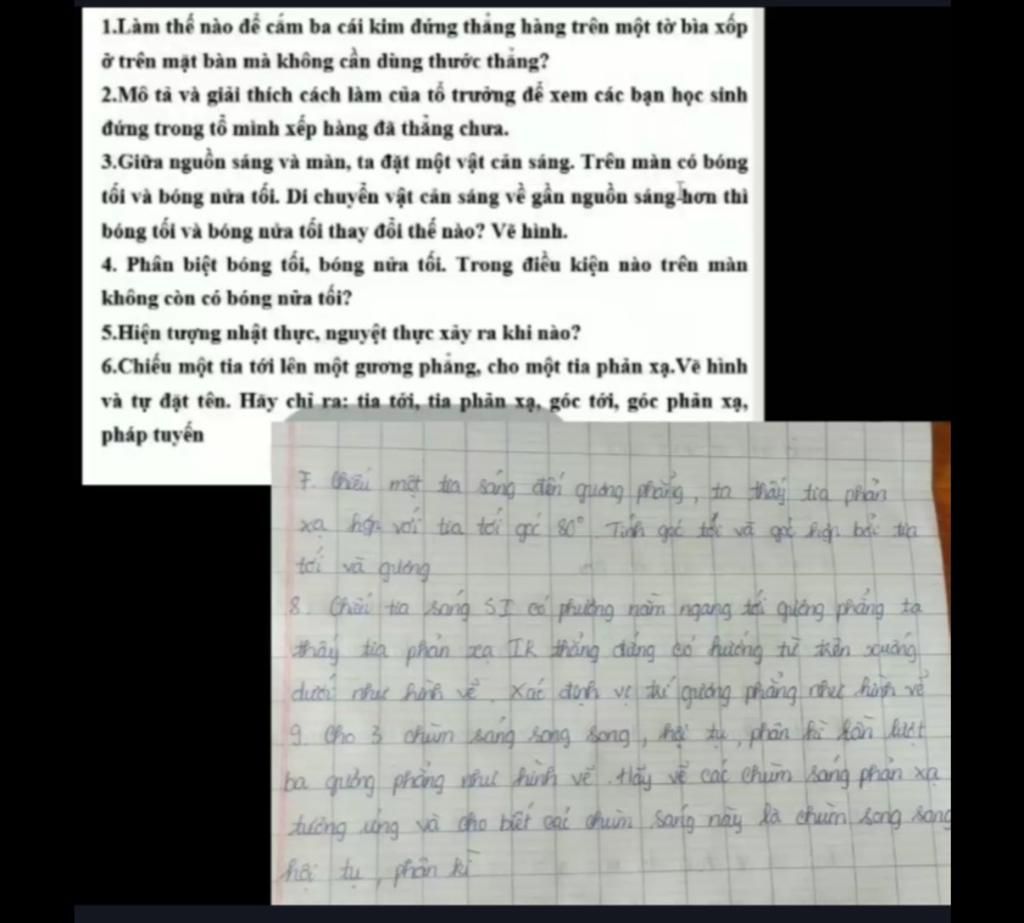 1.Làm thế nào để cắm ba cái kim đứng thẳng hàng trên một tờ bìa xốp
ở trên mặt bàn mà không cần dùng thước thẳng?
2.Mô tả và giải thích cách làm của tổ trưởng để xem các bạn học sinh
đứng trong tổ mình xếp hàng đã thẳng chưa.
3.Giữa nguồn sáng và màn, ta đặt một vật cản sáng. Trên màn có bóng
tối và bóng nửa tối. Di chuyển vật cản sáng về gần nguồn sáng hơn thì
bóng tối và bóng nửa tối thay đổi thế nào? Vẽ hình.
4. Phân biệt bóng tối, bóng nửa tối. Trong điều kiện nào trên màn
không còn có bóng nửa tối?
5.Hiện tượng nhật thực, nguyệt thực xảy ra khi nào?
6.Chiếu một tia tới lên một gương phẳng, cho một tia phản xạ.Vẽ hình
và tự đặt tên. Hãy chỉ ra: tia tới, tia phản xạ, góc tới, góc phản xạ,
pháp tuyến
7. Chiếu một tia sáng đến gương phẳng, ta thấy tia phản
xạ hợp với tia tới góc 80°. Tính góc tới và góc hợp bởi tia
tới và gương
8. Chiếu tia sáng SI có phương nằm ngang tới gương phẳng ta
thấy tia phản xạ IR thẳng đứng có hướng từ trên xuống
dưới như hình vẽ. Xác định vị trí gương phẳng như hình vẽ
9. Cho 3 chùm sáng song song, hội tụ, phân kì lần lượt
ba gương phẳng như hình vẽ. Hãy vẽ các chùm sáng phản xạ
tương ứng và cho biết các chùm sáng này là chùm song song
hội tụ, phân kì